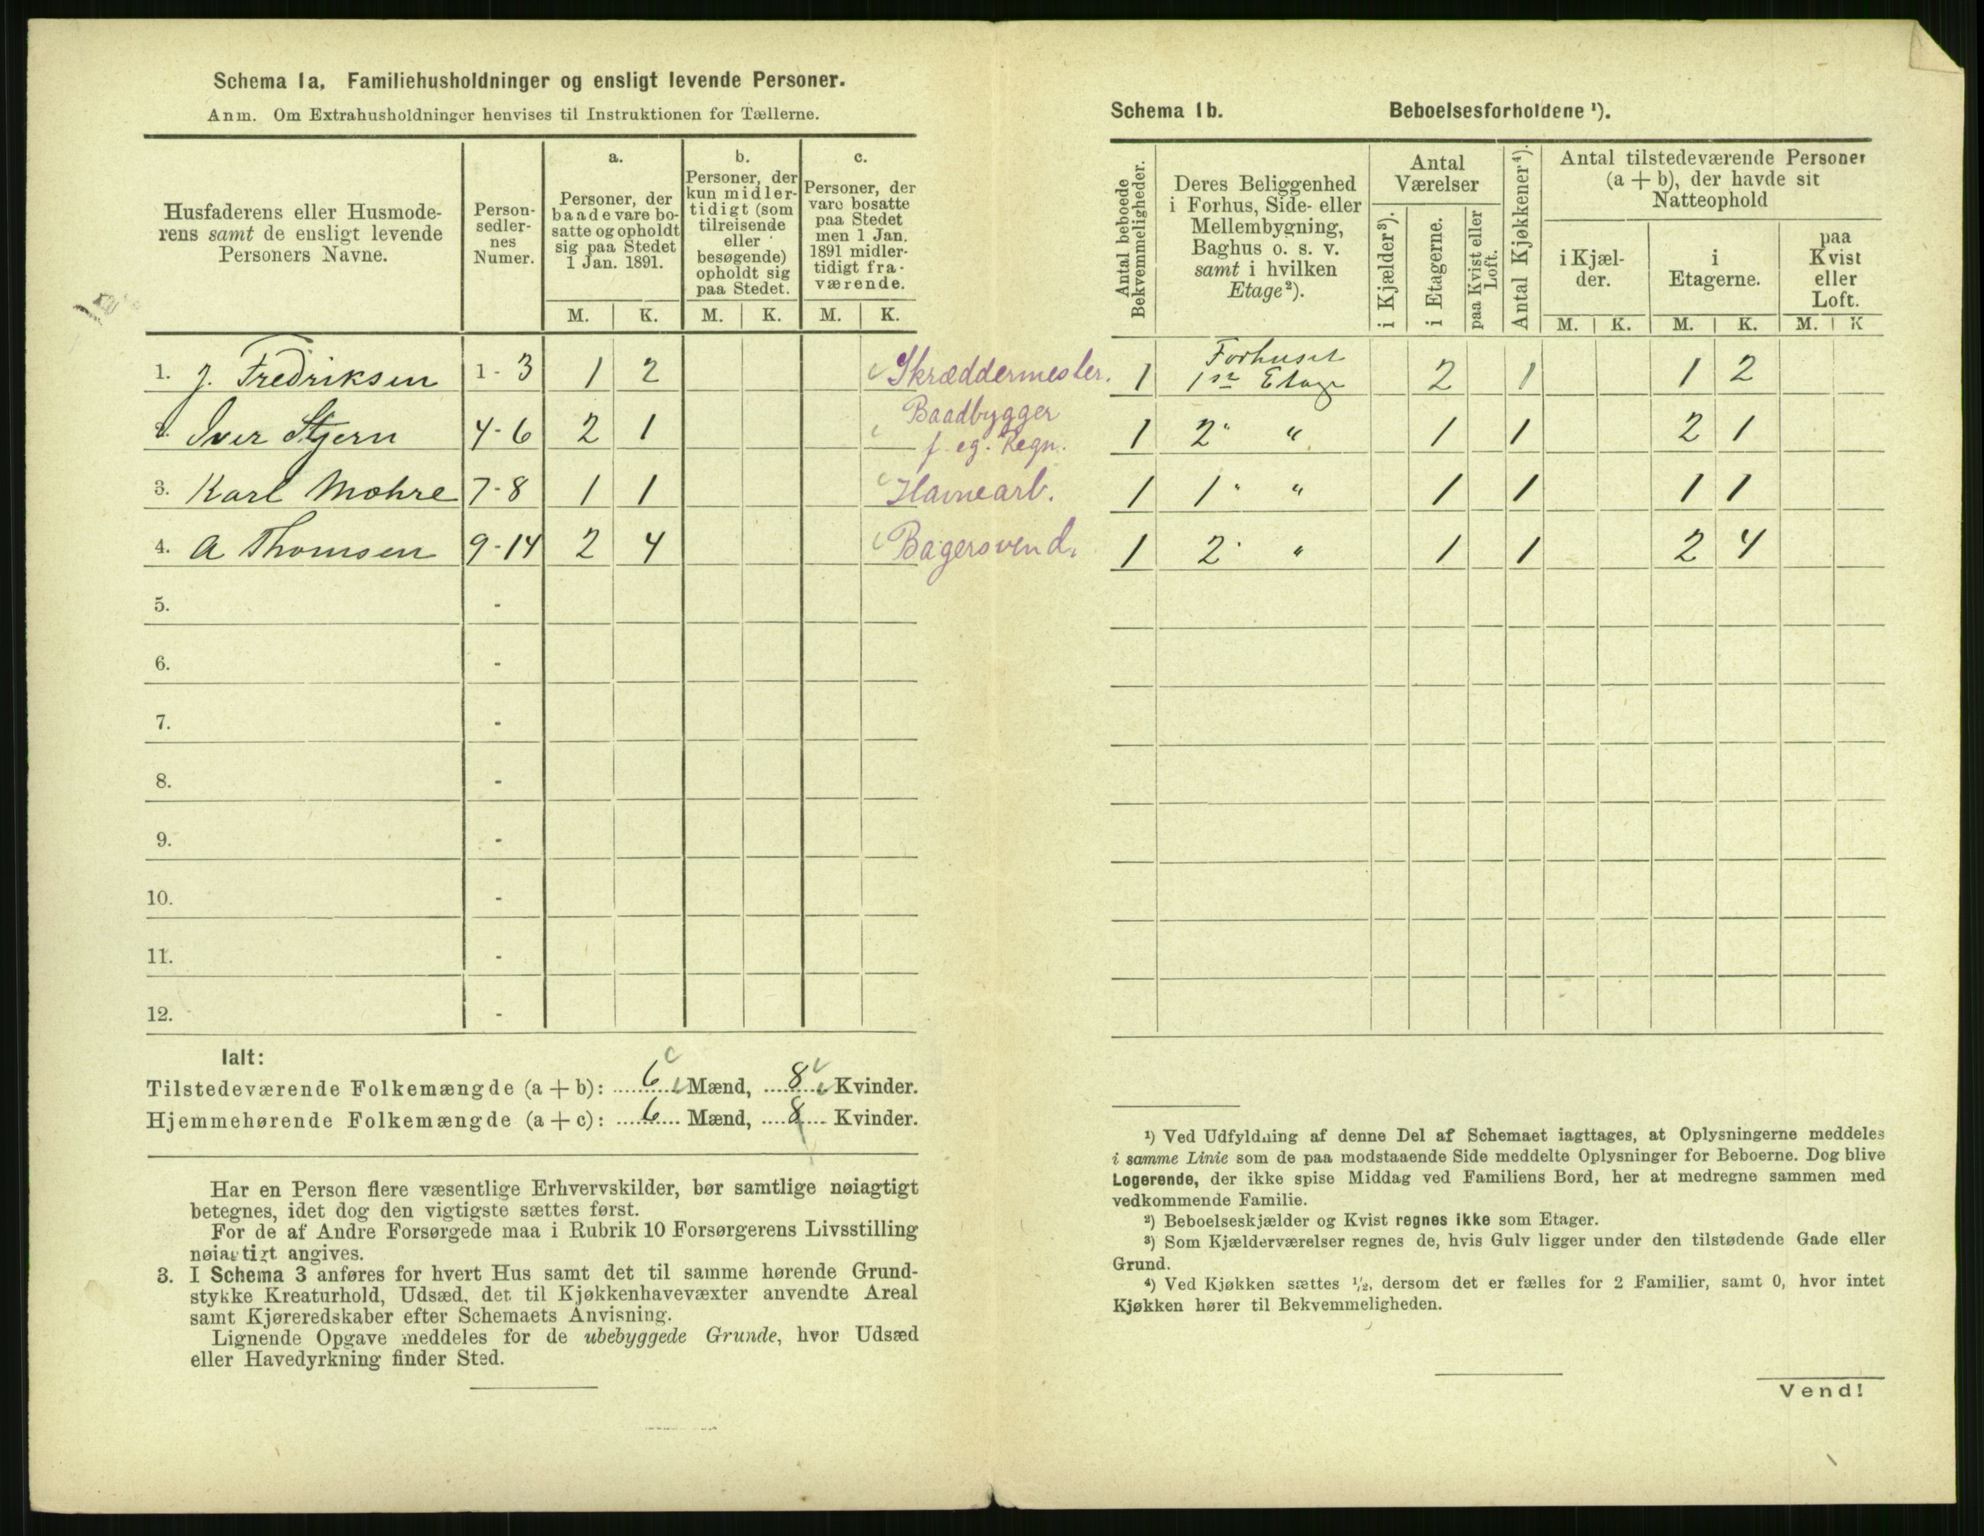 Schema 1a. Familiehusholdninger og ensligt levende Personer.
Anm. Om Extrahusholdninger henvises til Instruktionen for Tællerne.
Husfaderens eller Husmoderens samt de ensligt levende Personers Navne.
Personsedlernes Numer.
a. Personer, der baade vare bosatte og opholdt sig paa Stedet 1 Jan. 1891.
b. Personer, der kun midlertidigt (som tilreisende eller besøgende) opholdt sig paa Stedet.
c. Personer, der vare bosatte paa Stedet men 1 Jan. 1891 midlertidigt fraværende.
M. K. M. K. M. K.
1. J. Fredriksen 1-3 1 2 Skræddermester.
2. Iver Stjern 4-6 2 1 Baadbygger
f. eg. Regn.
3. Karl Mohre 7-8 1 1 Havnearb.
4. A Thomsen 9-14 2 4 Bagersvend.
5. -
6. -
7. -
8. -
9. -
10. -
11. -
12. -
Ialt:
Tilstedeværende Folkemængde (a + b): 6 Mænd, 8 Kvinder.
Hjemmehørende Folkemængde (a + c): 6 Mænd, 8 Kvinder.
Har en Person flere væsentlige Erhvervskilder, bør samtlige nøiagtigt
betegnes, idet dog den vigtigste sættes først.
For de af Andre Forsørgede maa i Rubrik 10 Forsørgerens Livsstilling
nøiagtigt angives.
3. I Schema 3 anføres for hvert Hus samt det til samme hørende Grund-
stykke Kreaturhold, Udsæd, det til Kjøkkenhavevæxter anvendte Areal
samt Kjøreredskaber efter Schemaets Anvisning.
Lignende Opgave meddeles for de ubebyggede Grunde, hvor Udsæd
eller Havedyrkning finder Sted.
Schema 1b. Beboelsesforholdene ¹).
Antal beboede Bekvemmeligheder.
Deres Beliggenhed i Forhus, Side- eller Mellembygning, Baghus o. s. v. samt i hvilken Etage²).
Antal Værelser
i Kjælder³).
i Etagerne.
paa Kvist eller Loft.
Antal Kjøkkener⁴).
Antal tilstedeværende Personer (a + b), der havde sit Natteophold
i Kjælder.
i Etagerne.
paa Kvist eller Loft.
M. K. M. K. M. K
1 Forhuset
1ste Etage 2 1 1 2
1 2" " 1 1 2 1
1 1" " 1 1 1 1
1 2" " 1 1 2 4
¹) Ved Udfyldning af denne Del af Schemaet iagttages, at Oplysningerne meddeles
i samme Linie som de paa modstaaende Side meddelte Oplysninger for Beboerne. Dog blive
Logerende, der ikke spise Middag ved Familiens Bord, her at medregne sammen med
vedkommende Familie.
²) Beboelseskjælder og Kvist regnes ikke som Etager.
³) Som Kjælderværelser regnes de, hvis Gulv ligger under den tilstødende Gade eller
Grund.
⁴) Ved Kjøkken sættes ½, dersom det er fælles for 2 Familier, samt 0, hvor intet
Kjøkken hører til Bekvemmeligheden.
Vend!